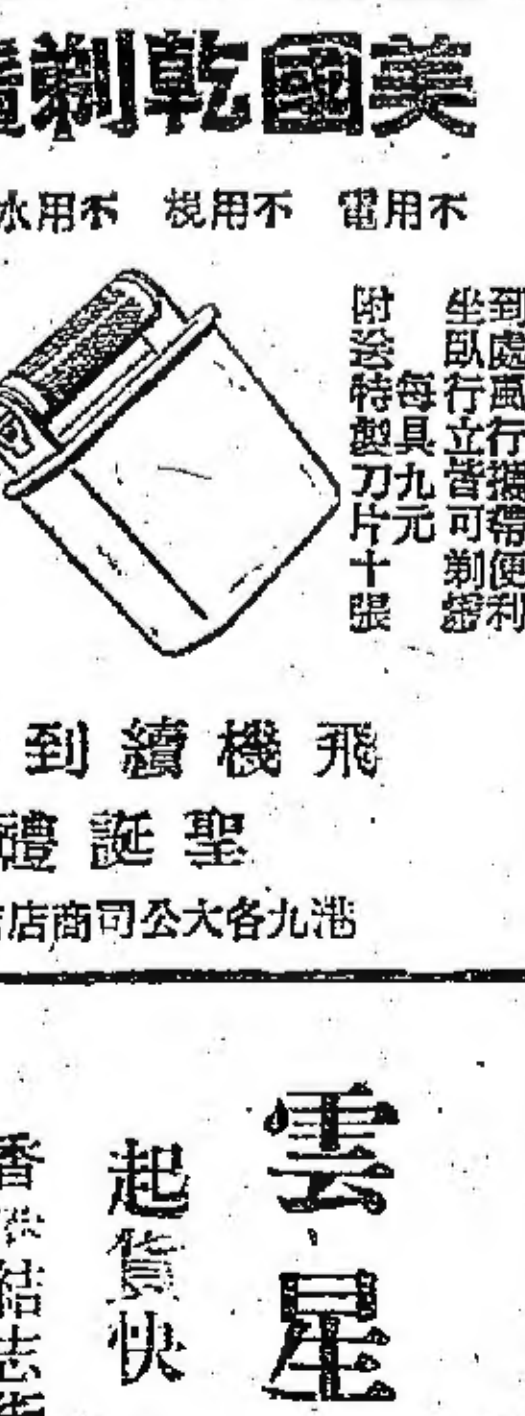 美國乾剃鬚
不用電 不用梘 不用水
到處風行攜帶便利
坐臥行立皆可剃鬚
每具九元
附送特製刀片十張
飛機續到
聖誕禮
港九各大公司商店
雲星
起貨快
香港結志街